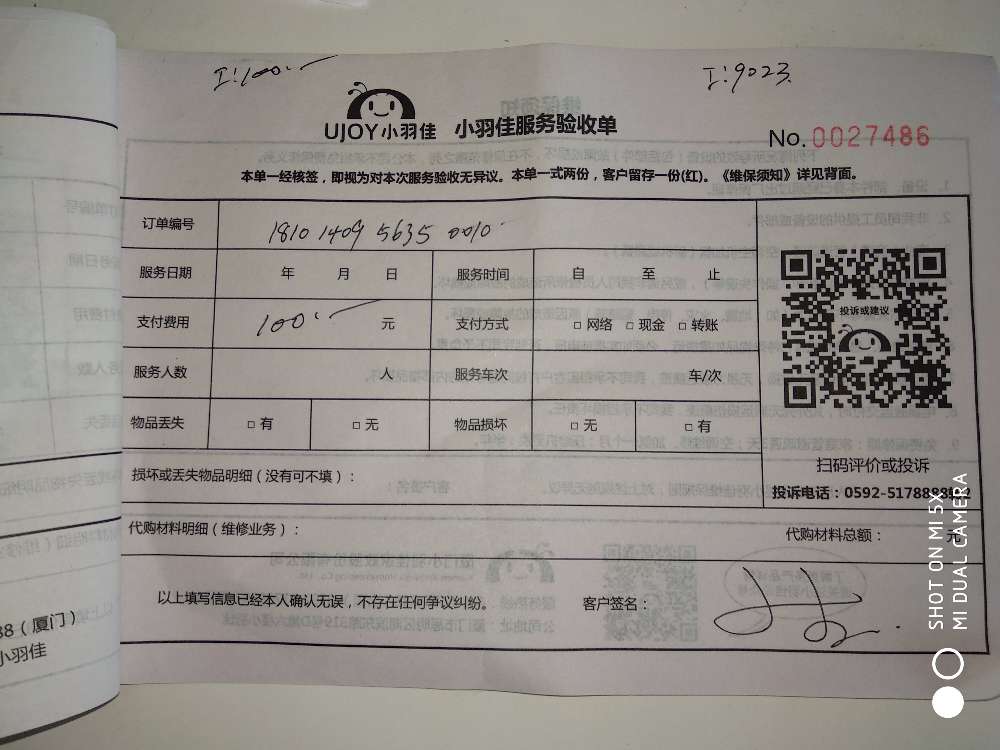 I:100.
I:9023.
UJOY小羽佳 小羽佳服务验收单
No.0027486
本单一经核签，即视为对本次服务验收无异议。本单一式两份，客户留存一份(红)。《维保须知》详见背面。
订单编号 1810 1409 5635 0010
服务日期 年 月 日 服务时间 自 至 止
支付费用 100. 元 支付方式 □ 网络 □ 现金 □ 转账
投诉或建议
服务人数 人 服务车次 车/次
物品丢失 □ 有 □ 无 物品损坏 □ 无 □ 有
扫码评价或投诉
损坏或丢失物品明细（没有可不填）：
投诉电话：0592-5178888
代购材料明细（维修业务）： 代购材料总额： 元
以上填写信息已经本人确认无误，不存在任何争议纠纷。 客户签名：
88（厦门）
小羽佳
SHOT ON MI 5X
MI DUAL CAMERA